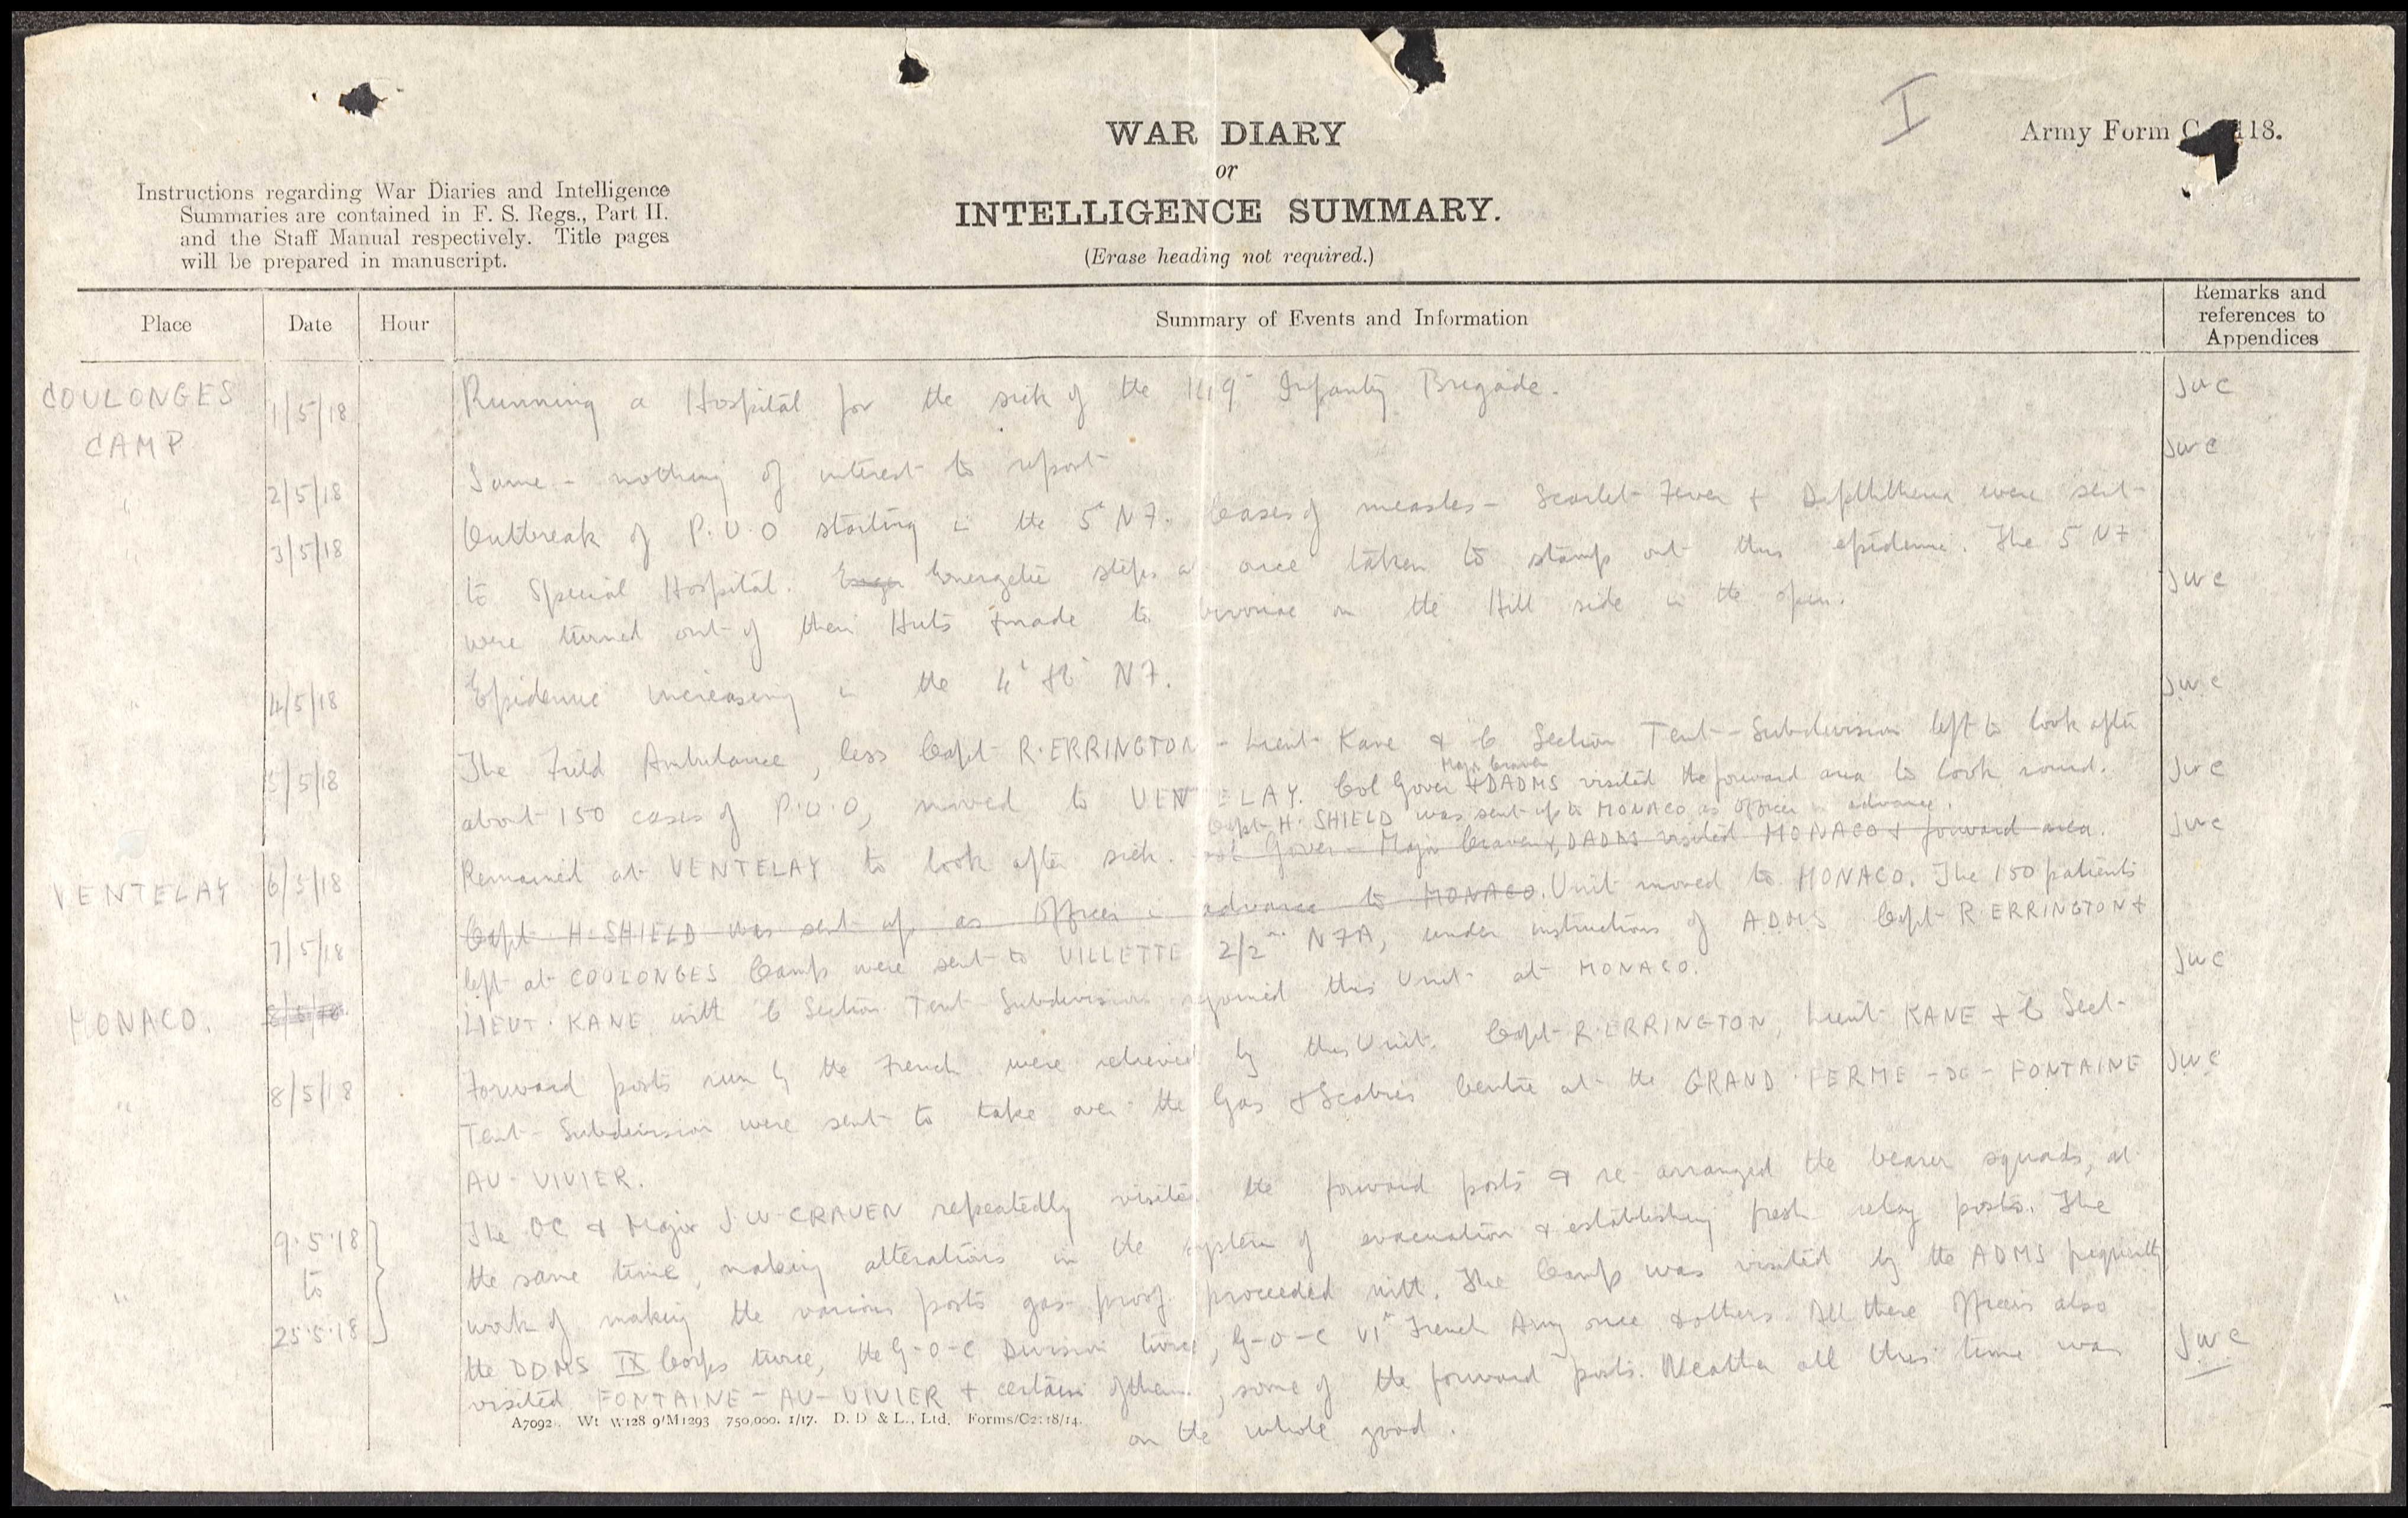 I
WAR DIARY
Army Form C. 118.
or
Instructions regarding War Diaries and Intelligence
Summaries are contained in F. S. Regs., Part II.
and the Staff Manual respectively. Title pages
will be prepared in manuscript.
INTELLIGENCE SUMMARY.
(Erase heading not required.)
Place Date Hour Summary of Events and Information Remarks and references to Appendices
COULONGES CAMP 1/5/18 Running a Hospital for the sick of the 149 Infantry Brigade. JWC
" 2/5/18 Same - nothing of interest to report JWC
" 3/5/18 Outbreak of P.U.O starting in the 5 NF. Cases of measles - Scarlet Fever + Diphththeria were sent
to Special Hospital. Energetic steps at once taken to stamp out this epidemic. The 5 NF
were turned out of their Huts & made to bivouac on the Hill side in the open. JWC
" 4/5/18 Epidemic increasing in the 4 & 6 NF. JWC
5/5/18 The Field Ambulance, less Capt R. ERRINGTON - Lieut Kane & C Section Tent-Subdivision left to look after
about 150 cases of P.U.O, moved to VENTELAY. Col Gover Major Craven + DADMS visited the forward area to look round. JWC
Capt H. SHIELD was sent up to MONACO as Officer in advance.
VENTELAY 6/5/18 Remained at VENTELAY to look after sick. Col Gover - Major Craven +, DADMS visited MONACO + forward area. JWC
7/5/18 Capt H. SHIELD was sent up as Officer in advance to MONACO. Unit moved to MONACO. The 150 patients
left at COULONGES Camp were sent to VILLETTE 2/2 NFA, under instructions of ADMS Capt R ERRINGTON +
MONACO. 8/5/18 LIEUT. KANE with C Section Tent Subdivision rejoined this Unit at MONACO. JWC
" 8/5/18 Forward posts run by the French were relieved by this Unit. Capt R. ERRINGTON, Lieut KANE + C Sect
Tent-Subdivision were sent to take over the Gas & Scabies Centre at the GRAND FERME - DE - FONTAINE JWC
AU - VIVIER.
" 9.5.18 to 25.5.18 The OC & Major J.W. CRAVEN repeatedly visited the forward posts & re-arranged the bearer squads, at
the same time, making alterations in the system of evacuation & establishing fresh relay posts. The
work of making the various posts gas proof proceeded with. The Camp was visited by the ADMS frequently
the DDMS IX Corps twice, the G-O-C Division twice, G-O-C VI French Army once & others. All these Officers also
visited FONTAINE - AU - VIVIER + certain of them, some of the forward posts. Weather all this time was JWC
on the whole good.
A7092. Wt W128 9/M1293 750,000. 1/17. D. D & L., Ltd. Forms/C2118/14.